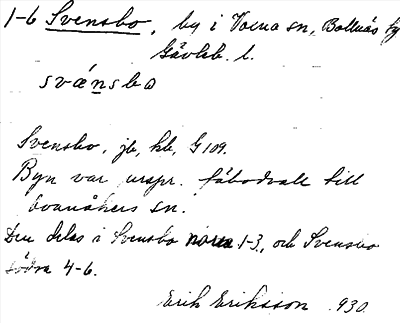 1-6 Svensbo, by i Voxna sn, Bollnäs fg
Gävleb. l.
svænsbo
Svensbo, jb, kb, G 109.
Byn var urspr. fäbodvall till
Ovanåkers sn.
Den delas i Svensbo norra 1-3, och Svensbo
södra 4-6.
Erik Eriksson 930